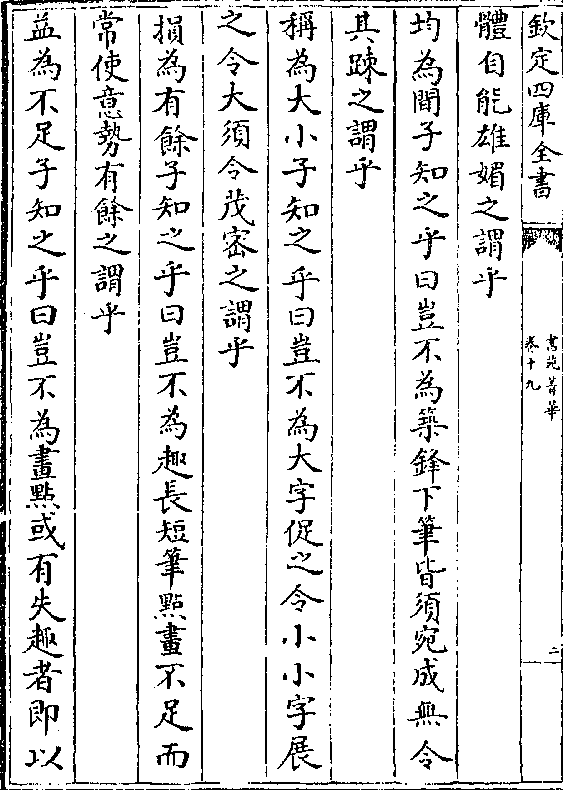 欽定四庫全書
書苑菁華
卷十九
二
體自能雄媚之謂乎
均為間子知之乎曰豈不為築鋒下筆皆須宛成無令
其踈之謂乎
稱為大小子知之乎曰豈不為大字促之令小小字展
之令大須令茂密之謂乎
損為有餘子知之乎曰豈不為趣長短筆點畫不足而
常使意勢有餘之謂乎
益為不足子知之乎曰豈不為畫點或有失趣者即以